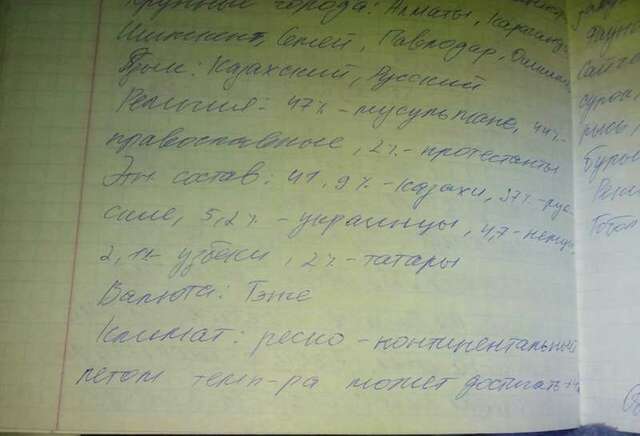 Крупные города: Алматы, Караганда
Шимкент, Семей, Павлодар,
Язык: Казахский, Русский
Религия: 47% - мусульмане, 44% -
православные, 2% - протестанты
Эт. состав: 41,9% - казахи, 37% - рус-
ские, 5,2% - украинцы, 4,7 - немцы
2,1% узбеки, 2% - татары
Валюта: Тэнге
Климат: реско - континентальный
летом темп-ра может достигать